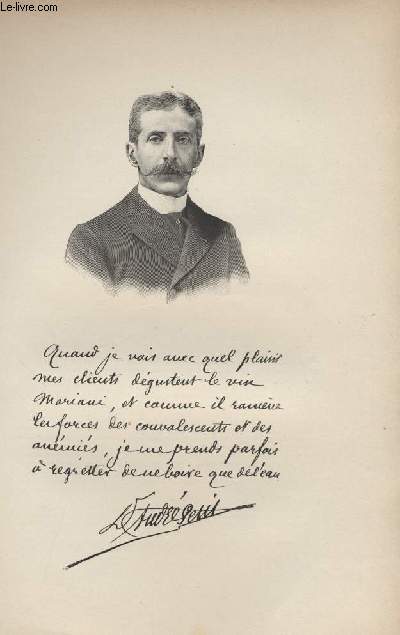 Le-livre.com
Quand je vois avec quel plaisir
mes clients dégustent le vin
Mariani, et comme il ramène
les forces des convalescents et des
anémiés, je me prends parfois
à regretter de ne boire que de l'eau
Dr André Petit